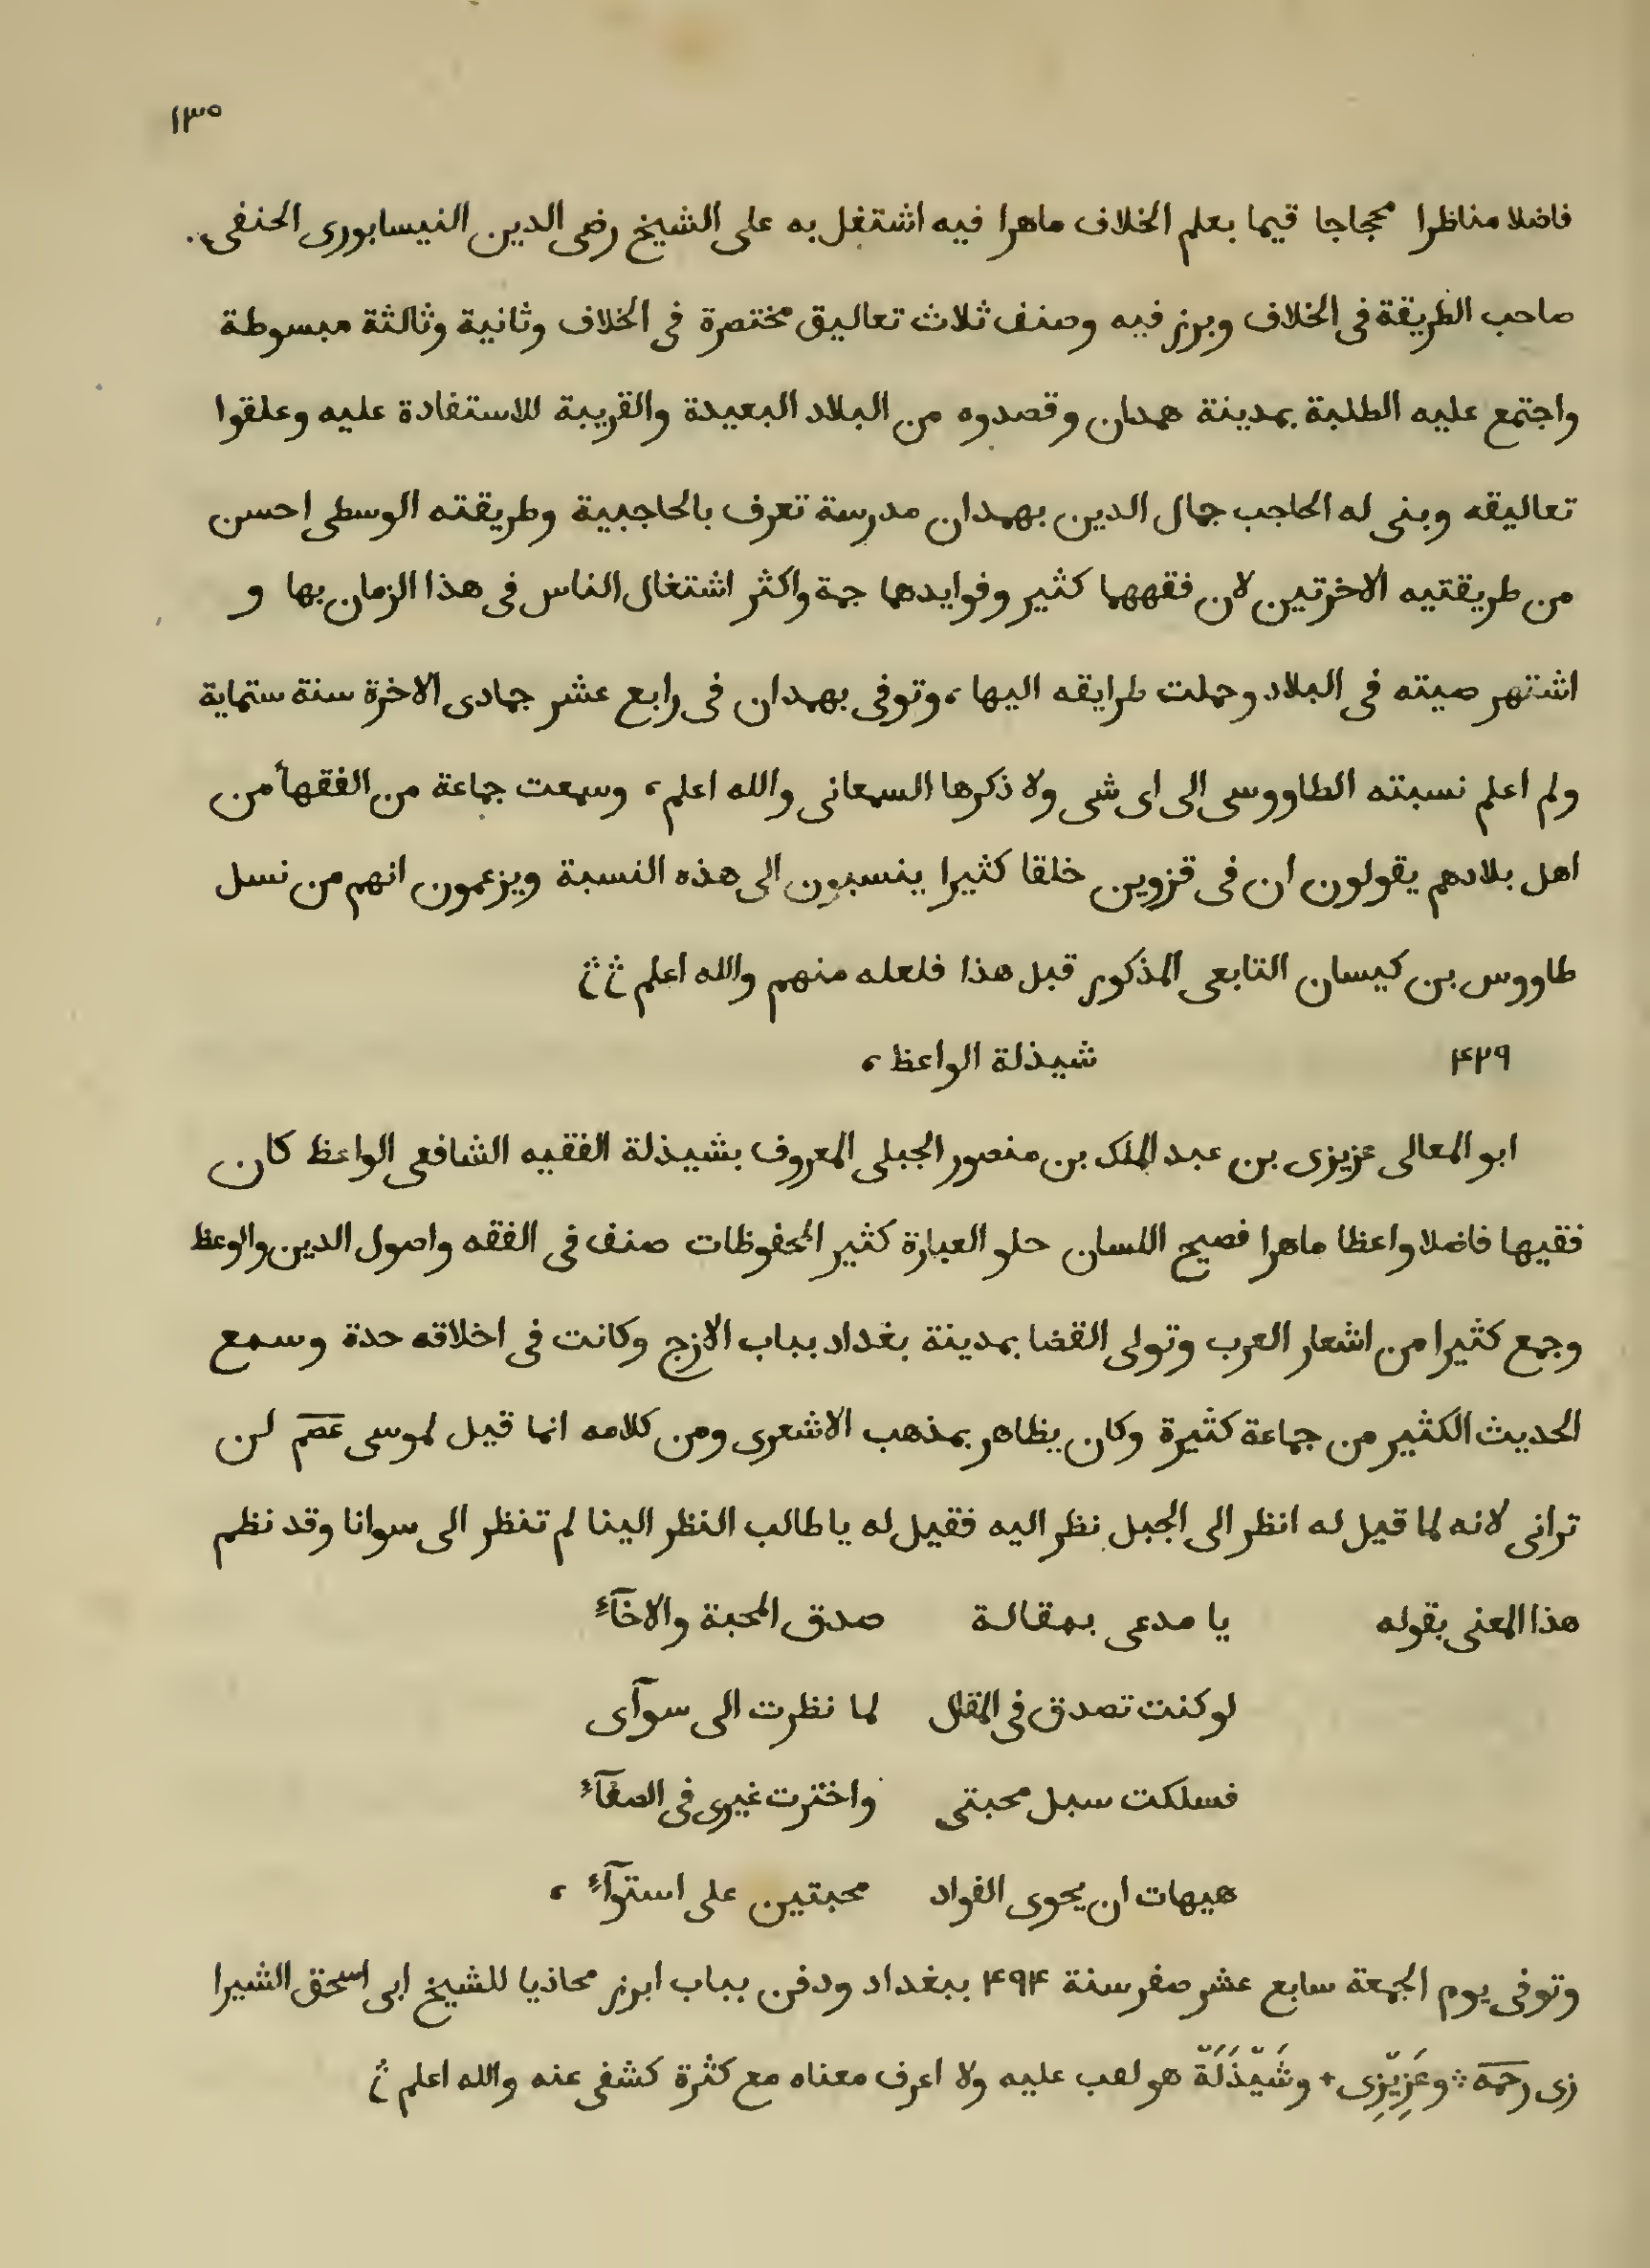 ١٣٥
فاضلا مناظرا محجاجا قيما بعلم الخلاف ماهرا فيه اشتغل به على الشيخ رضى الدين النيسابورى الحنفى
صاحب الطريقة فى الخلاف وبرز فيه وصنف ثلاث تعاليق مختصرة فى الخلاف وثانية وثالثة مبسوطة
واجتمع عليه الطلبة بمدينة همدان وقصدوه من البلاد البعيدة والقريبة للاستفادة عليه وعلقوا
تعاليقه وبنى له الحاجب جمال الدين بهمدان مدرسة تعرف بالحاجبية وطريقته الوسطى احسن
من طريقتيه الاخرتين لان فقهها كثير وفوايدها جمة واكثر اشتغال الناس فى هذا الزمان بها و
اشتهر صيته فى البلاد وحملت طرايقه اليها، وتوفى بهمدان فى رابع عشر جمادى الاخرة سنة ستماية
ولم اعلم نسبته الطاووسى الى اى شى ولا ذكرها السمعانى والله اعلم، وسمعت جماعة من الفقهأ من
اهل بلادهم يقولون ان فى قزوين خلقا كثيرا ينسبون الى هذه النسبة ويزعمون انهم من نسل
طاووس بن كيسان التابعى المذكور قبل هذا فلعله منهم والله اعلم
۴۲۹ شيذلة الواعظ،
ابو المعالى عزيزى بن عبد الملك بن منصور الجبلى المعروف بشيذلة الفقيه الشافعى الواعظ كان
فقيها فاضلا واعظا ماهرا فصيح اللسان حلو العبارة كثير المحفوظات صنف فى الفقه واصول الدين والوعظ
وجمع كثيرا من اشعار العرب وتولى القضا بمدينة بغداد بباب الازج وكانت فى اخلاقه حدة وسمع
الحديث الكثير من جماعة كثيرة وكان يظاهر بمذهب الاشعرى ومن كلامه انما قيل لموسى عصم لن
ترانى لانه لما قيل له انظر الى الجبل نظر اليه فقيل له يا طالب النظر الينا لم تنظر الى سوانا وقد نظم
هذا المعنى بقوله يا مدعى بمقالة صدق المحبة والاخآء
لو كنت تصدق فى المقال لما نظرت الى سوآى
فسلكت سبل محبتى واخترت غيرى فى الصفآء
هيهات ان يحوى الفواد محبتين على استوآء،
وتوفى يوم الجمعة سابع عشر صفر سنة ۴۹۴ ببغداد ودفن بباب ابرز محاذيا للشيخ ابى اسحق الشيرا
زى رحمه وعَزِيّزِى وشَيّذَلَة هو لعب عليه ولا اعرف معناه مع كثرة كشفى عنه والله اعلم